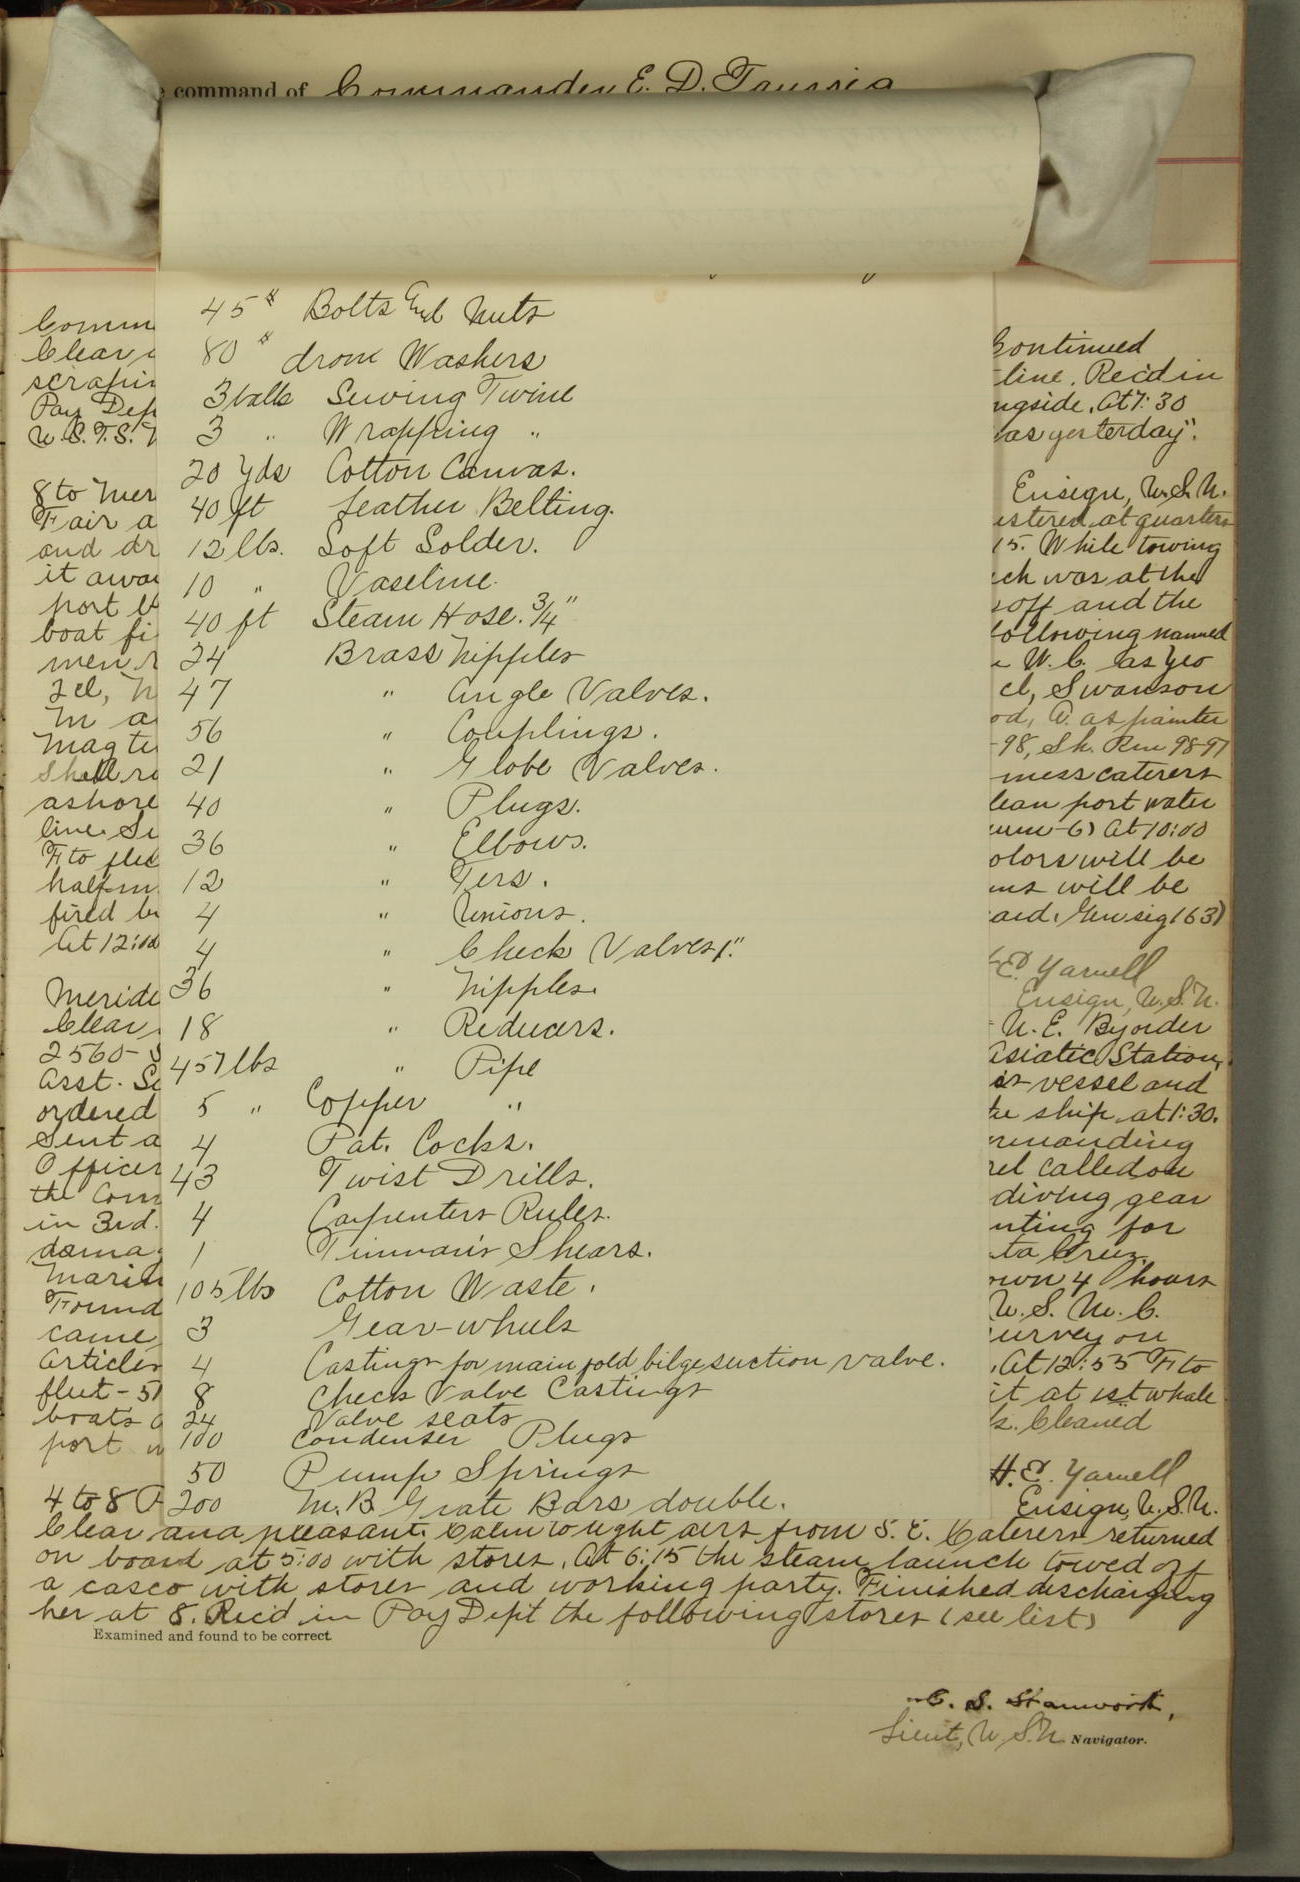 command of Commander E. D. Taussig
45# Bolts and Nuts
80# Iron Washers
3 balls Sewing Twine
3 " Wrapping "
20 Yds Cotton Canvas.
40 ft Leather Belting.
12 lbs. Soft Solder.
10 " Vaseline.
40 ft Steam Hose. 3/4"
24 Brass Nipples
47 " Angle Valves.
56 " Couplings.
21 " Globe Valves.
40 " Plugs.
36 " Elbows.
12 " Tees.
4 " Unions.
4 " Check Valves 1."
36 " Nipples.
18 " Reducers.
457 lbs " Pipe
5 " Copper "
4 Pat. Cocks.
43 Twist Drills.
4 Carpenters Rules.
1 Tinman's Shears.
105 lbs Cotton Waste.
3 Gear-wheels
4 Castings for main fold bilge suction valve.
8 Check Valve Castings
24 Valve seats
100 Condenser Plugs
50 Pump Springs
200 M. B. Grate Bars double.
Comm
Clear
scrapin
Pay Dep
U.S.T.S.
8 to Mer
Fair a
and dr
it awa
port
boat fi
men
2cl, N
M a
Mag te
Shell r
ashore
line. Si
F to flee
half m
fired b
At 12:00
Meride
Clear
2560-
Asst. S
ordered
Sent a
Officer
the Com
in 3rd.
dama
Marin
Found
came
Articles
fleet - 51
boats
port w
4 to 8 P
Continued
line. Rec'd in
ngside. At 7:30
as yesterday".
Ensign, U.S.N.
stered at quarters
15. While towing
ch was at the
off and the
following named
W. C. as Yeo
cl, Swanson
od, A. as painter
-98, Sh. Rm 98-97
mess caterers
lean port water
-6) At 10:00
olors will be
ns will be
ard. Gen sig 163)
E. Yarnell
Ensign, U.S.N.
N. E. By order
Asiatic Station,
vessel and
he ship at 1:30.
mmanding
rel called on
diving gear
nting for
ta Cruz.
own 4 hours
U. S. M. C.
urvey on
. At 12:55 F to
it at 1st whale
. Cleaned
H. E. Yarnell
Ensign, U.S.N.
Clear and pleasant. Calm to light airs from S. E. Caterers returned
on board at 5:00 with stores. At 6:15 the steam launch towed off
a casco with stores and working party. Finished discharging
her at 8. Rec'd in Pay Dep't the following stores (see list)
Examined and found to be correct.
C. S. Stanworth,
Lieut, U.S.N. Navigator.